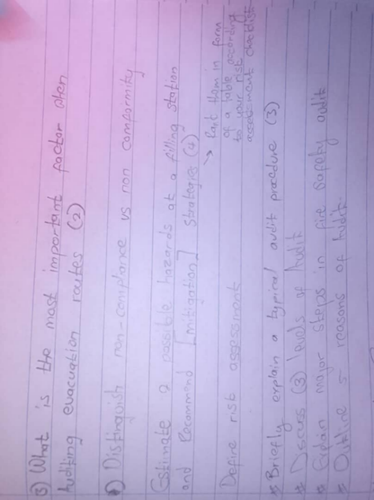 3) What is the most important factor when
Auditing evacuation routes (2)
4) Distinguish non-compliance vs non conformity
Estimate 2 possible hazards at a filling station
and Recommend [mitigation] strategies (4)
→ Put them in form
of a table according
to your risk
assessment checklist
Define risk assessment
* Briefly explain a typical audit procedure (3)
* Discuss (3) levels of Audit
* Explain major steps in fire safety audit
* Outline 5 reasons of Audit.